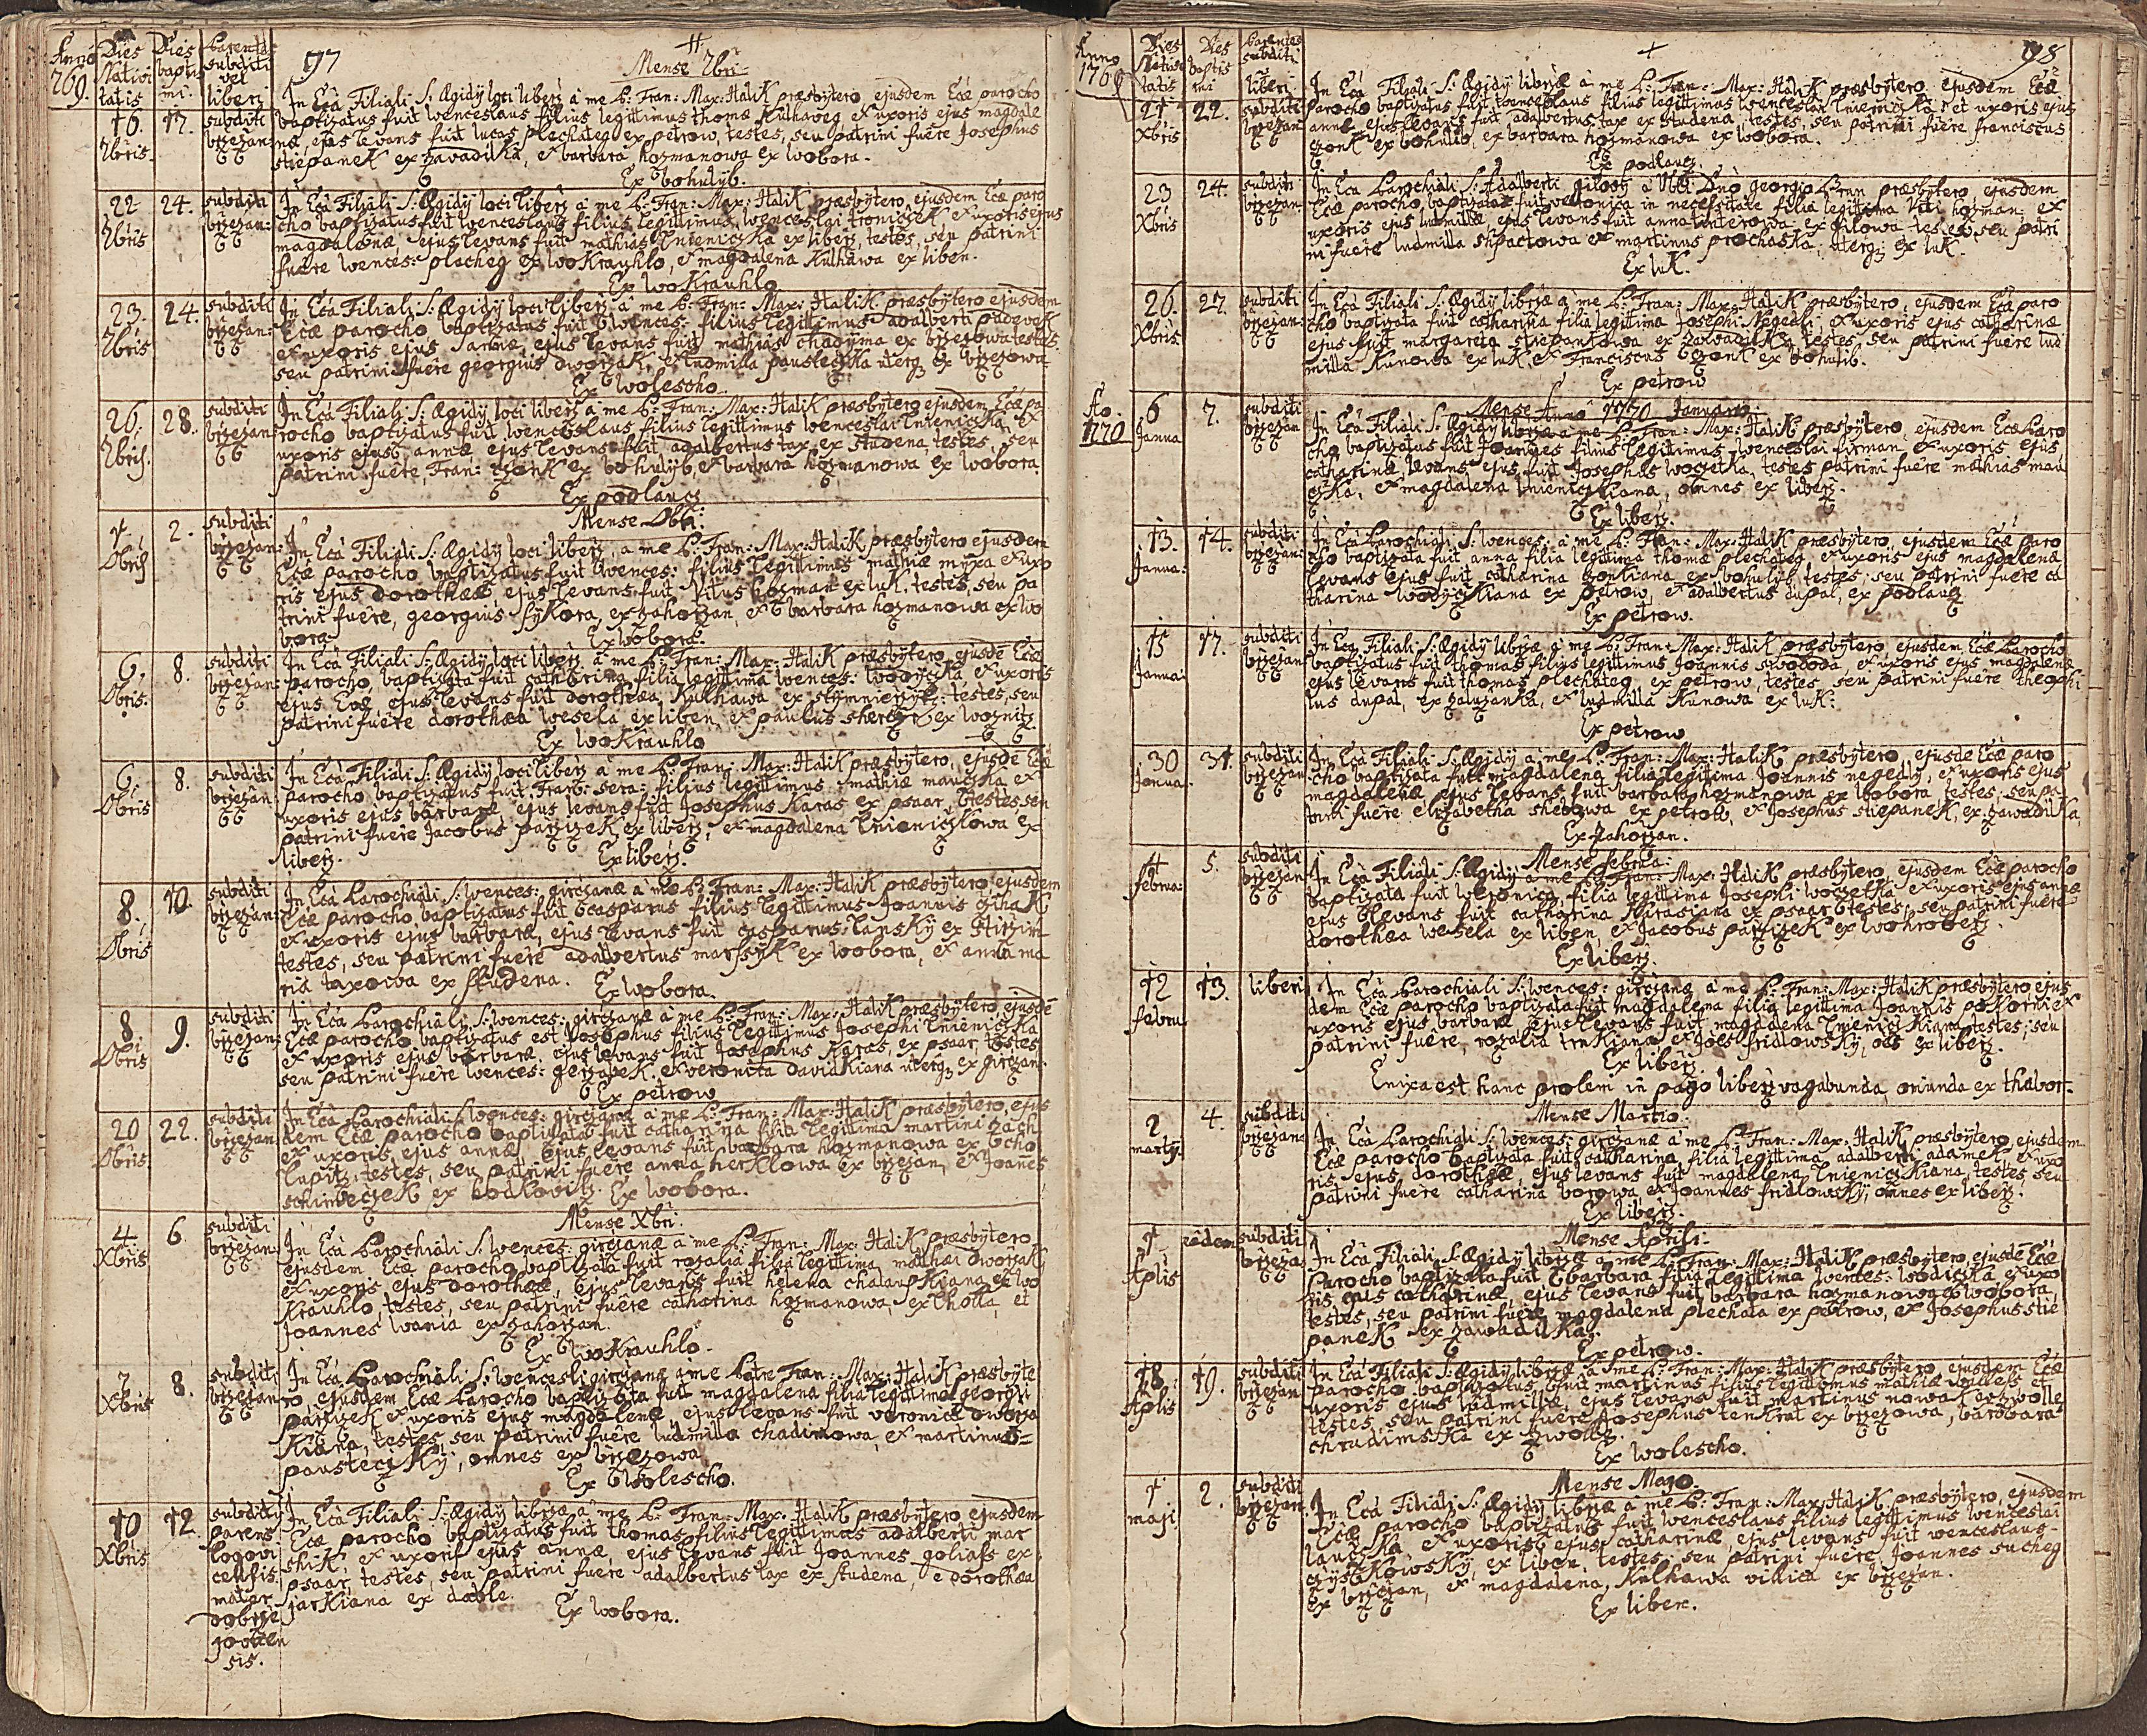 Anno 1769.
Dies Nativitatis
Dies baptismi.
Parentes subditi vel liberi
97
Mense 7bri
16. 7bris.
17.
subditi brzezan:
In Ecã Filiali S: Ægidÿ loci liberz à me P: Fran: Max: Halik præsbÿtero ejusdem Ecæ parocho
baptizatus fuit wenceslaus filius legittimus thomæ Kulhaveg et uxoris ejus magdale
næ, ejus levans fuit lucas plechateg ex petrow, testes, seu patrini fuêre Josephus
stiepanek ex zavadilka, et barbara hozmanowa ex wobora.
Ex bohulÿb.
22 7bris
24.
subditi brzezan:
In Ecã Filiali S: Ægidÿ loci liberz à me P: Fran: Max: Halik præsbÿtero, ejusdem Ecæ paro
cho baptizatus fuit wenceslaus filius legittimus wenceslai troniczek et uxoris ejus
magdalenæ, ejus levans fuit mathias Knieniczka ex liberz, testes, seu patrini
fuêre wences: plecheg ex woKrauhlo, et magdalena Kulhawa ex liben.
Ex woKrauhlo
23. 7bris
24.
subditi brzezan:
In Ecã Filiali S: Ægidÿ loci liberz à me P: Fran: Max: Halik præsbÿtero ejusdem
Ecæ parocho baptizatus fuit wences: filius legittimus adalberti padevek
et uxoris ejus annæ, ejus levans fuit mathias chadÿma ex brzezowa testes
seu patrini fuêre georgius dworzak, et ludmilla pausteczka uterq ex brzezowa
Ex wolescho.
26. 7bris.
28.
subditi brzezan:
In Ecã Filiali S: Ægidÿ loci liberz à me P: Fran: Max: Halik præsbÿtero ejusdem Ecæ pa
rocho baptizatus fuit wenceslaus filius legittimus wenceslai Knieniczka et
uxoris ejus annæ ejus levans fuit adalbertus tax ex studena, testes, seu
patrini fuêre, Fran: czonk ex bohulÿb, et barbara hozmanowa ex wobora.
Ex podlaucz
Mense 8bri:
1 8bris
2.
subditi brzezan:
In Ecã Filiali S: Ægidÿ loci liberz, à me P: Fran: Max: Halik præsbÿtero ejusdem
Ecæ parocho baptizatus fuit wences: filius legittimus mathiæ mÿxa et uxo
ris ejus dorothææ ejus levans fuit vitus hozman ex luk. testes, seu pa
trini fuêre, georgius sÿkora, ex zahorzan, et barbara hozmanowa ex wo
bora
Ex wobora.
6. 8bris.
8.
subditi brzezan:
In Ecã Filiali S: Ægidÿ loci liberz à me P: Fran: Max: Halik præsbÿtero ejusdẽ Ecæ
parocho baptizata fuit catharina filia legittima wences: wodÿczka et uxoris
ejus Evæ, ejus levans fuit dorothæa Kulhawa ex slÿmnierzitz: testes, seu
patrini fuêre dorothæa wesela ex liben et paulus sherer ex woznitz
Ex woKrauhlo
6. 8bris
8.
subditi brzezan
In Ecã Filiali S: Ægidÿ loci liberz à me P: Fran: Max: Halik præsbÿtero, ejusdẽ Ecæ
parocho baptizatus fuit Fran: sera: filius legittimus mathiæ mauczka et
uxoris ejus barbaræ, ejus levans fuit Josephus Karas ex psaar, testes, seu
patrini fuêre Jacobus parzizek ex liberz, et magdalena Knieniczkowa ex
liberz.
Ex liberz.
8. 8bris
10.
subditi brzezan:
In Ecã Parochiali S: wences: girczanæ à me P: Fran: Max: Halik præsbÿtero ejusdem
Ecæ parocho baptizatus fuit casparus filius legittimus Joannis czihak
et uxoris ejus barbaræ, ejus levans fuit casparus lanskÿ ex stiezim
testes, seu patrini fuêre adalbertus marssÿk ex wobora, et anna ma
ria taxowa ex studena.
Ex wobora.
8 8bris
9.
subditi brzezan:
In Ecã Parochiali S: wences: girczanæ à me P: Fran: Max: Halik præsbÿtero, ejusdẽ
Ecæ parocho baptizatus est Josephus filius legittimus Josephi Knieniczka
et uxoris ejus barbaræ, ejus levans fuit Josephus Karas, ex psaar, testes
seu patrini fuêre wences: gerzabek et veronica davidkiana uterq ex girczan.
Ex petrow
20 8bris
22.
subditi brzezan
In Ecã Parochiali S: wences: girczanæ à me P: Fran: Max: Halik præsbÿtero, ejus
dem Ecæ parocho baptizata fuit catharina filia legittima martini zach
et uxoris ejus annæ ejus levans fuit barbara hozmanowa ex cho
lupitz, testes, seu patrini fuêre anna herklowa ex brzezan, et Joanes
schimeczek ex bodkovitz.
Ex wobora.
Mense Xbri:
4 Xbris
6
subditi brzezan:
In Ecã Parochiali S: wences: girczanæ à me P: Fran: Max: Halik præsbÿtero
ejusdem Ecæ parocho baptizata fuit rozalia filia legittima mathæi dworzak
et uxoris ejus dorothææ, ejus levans fuit helena chalaupkiana ex wo
Krauhlo, testes, seu patrini fuêre catharina hozmanowa, ex lhotta, et
Joannes wania ex zahorzan.
Ex woKrauhlo.
7 Xbris
8.
subditi brzezan
In Ecã Parochiali S: wencesli girczanæ à me Patre Fran: Max: Halik præsbÿte
ro, ejusdem Ecæ Parocho baptizata fuit magdalena filia legittima georgii
parzizek et uxoris ejus magdalenæ ejus levans fuit veronica dworza
Kiana, testes, seu patrini fuêre ludmilla chadimowa, et martinus
pausteczkÿ, omnes ex brzezowa
Ex Wolescho.
10 Xbris
12.
subditi parens logovicensis: mater dobrzegovicensis.
In Ecã Filiali S: Ægidÿ librzæ à me P: Fran: Max: Halik præsbÿtero ejusdem
Ecæ parocho baptizatus fuit thomas filius legittimus adalberti mar
shik, et uxoris ejus annæ, ejus levans fuit Joannes goliass ex
psaar, testes, seu patrini fuêre adalbertus tax ex studena, e dorothæa
jarkiana ex dable.
Ex wobora.
Anno 1769
Dies Nativitatis
Dies baptismi
Parentes subditi liberi
98
21 Xbris
22.
subditi brzezan
In Ecã Filiali S: Ægidÿ librzæ à me P: Fran: Max: Halik præsbÿtero ejusdem Ecæ
parocho baptizatus fuit wenceslaus filius legittimus wenceslai Knieniczka et uxoris ejus
annæ ejus levans fuit adalbertus tax ex studena, testes, seu patrini fuêre franciscus
czonk ex bohulib, ex barbara hozmanowa ex wobora.
Ex podlaucz
23 Xbris
24.
subditi brzezan
In Ecã Parochiali S: Adalberti gilový à Vbli Dnõ georgio Bran præsbÿtero ejusdem
Ecæ parocho, baptizata fuit veronica in necessitate filia legittima viti hozman et
uxoris ejus ludmillæ, ejus levans fuit anna winterowa, ex gilowa testes, seu patri
ni fuêre ludmilla shpactowa et martinus prochaska, uterq ex luk.
Ex luk.
26. Xbris
27.
subditi brzezan
In Ecã Filiali S: Ægidÿ librzæ à me P: Fran: Max: Halik præsbÿtero, ejusdem Ecæ paro
cho baptizata fuit catharina filia legittima Josephi Negedli, et uxoris ejus catharinæ
ejus fuit margareta stiepankowa ex zawadilka testes, seu patrini fuêre lud
milla Kunowa ex luk et Franciscus czonk ex bohulib.
Ex petrow
Ao 1770
Mense Anno 1770 Januario.
6 Janua
7.
subditi brzezan
In Ecã Filiali S: Ægidÿ librzæ à me P: Fran: Max: Halik præsbÿtero, ejusdem Ecæ Paro
cho baptizatus fuit Joannes filius legittimus wenceslai firman, et uxoris ejus
catharinæ, levans ejus fuit Josephus woczetka, testes patrini fuêre mathias mau
czka, et magdalena Knieniczkiana, omnes ex liberz.
Ex liberz.
13. Janua:
14.
subditi brzezan:
In Ecã Parochiali S: wences: à me P: Fran: Max: Halik præsbÿtero, ejusdem Ecæ paro
cho baptizata fuit anna filia legittima thomæ plechateg, et uxoris ejus magdalenæ
levans ejus fuit catharina czonkiana ex bohulib, testes, seu patrini fuêre ca
tharina wodÿczkiana ex petrow, et adalbertus dupal, ex podlaucz
Ex petrow.
15 Janua:
17.
subditi brzezan
In Ecã Filiali S: Ægidÿ librzæ à me P: Fran: Max: Halik præsbÿtero ejusdem, Ecæ Parocho
baptizatus fuit thomas filius legittimus Joannis swoboda, et uxoris ejus magdalenæ
ejus levans fuit thomas plechateg, ex petrow, testes, seu patrini fuêre theophi
lus dupal, ex zaluzanka, et ludmilla Kunowa ex luk:
Ex petrow
30 Janua.
31.
subditi brzezan
In Ecã Filiali S: Ægidÿ à me P: Fran: Max: Halik præsbÿtero, ejusde Ecæ paro
cho baptizata fuit magdalena filia legittima Joannis negedlÿ, et uxoris ejus
magdalenæ ejus levans fuit barbara hozmanowa ex wobora, testes, seu pa
trini fuêre elizabetha shebowa ex petrow, et Josephus stiepanek, ex zawadilka
Ex zahorzan.
Mense februa:
4 februa:
5.
subditi brzezan
In Ecã Filiali S: Ægidÿ à me P: Fran: Max: Halik præsbÿtero, ejusdem Ecæ parocho
baptizata fuit veronica filia legittima Josephi woczetka et uxoris ejus annæ
ejus levans fuit catharina Karasiana ex psaar testes, seu patrini fuêre
dorothæa wesela ex liben, et Jacobus parzizek ex wohrobetz.
Ex liberz.
12 febru
13.
liberi
In Ecã Parochiali S: wences: girczanæ à me P: Fran: Max: Halik præsbÿtero ejus
dem Ecæ parocho baptizata fuit magdalena filia legittima Joannis poKorni et
uxoris ejus barbaræ ejus levans fuit magdalena Knieniczkiana testes, seu
patrini fuêre, rozalia trnkiana et Joes fridlowskÿ, oes ex liberz.
Ex liberz.
Enixa est hanc prolem in pago liberz vagabunda, oriunda ex thabor.
Mense Martio.
2 martÿ.
4.
subditi brzezan
In Ecã Parochiali S: wences: girczanæ à me P: Fran: Max: Halik præsbÿtero, ejusdem
Ecæ parocho baptizata fuit catharina, filia legittima adalberti adamek et uxo
ris ejus dorothææ, ejus levans fuit magdalena Knieniczkiana, testes, seu
patrini fuêre catharina borowa, et Joannes fridlowskÿ, omnes ex liberz.
Ex liberz.
Mense Aprili.
1 Aplis
eâdem
subditi brzeza
In Ecã Filiali S: Ægidÿ librzæ à me P: Fran: Max: Halik præsbÿtero, ejusdẽ Ecæ
Parocho baptizata fuit barbara filia legittima wences: wodiczka, et uxo
ris ejus catharinæ, ejus levans fuit barbara hozmanowa ex wobora,
testes, seu patrini fuêre magdalena plechata ex petrow, et Josephus stie
panek ex zawadilka.
Ex petrow.
18. Aplis
19.
subditi brzezan
In Ecã Filiali S: Ægidÿ librzæ à me P: Fran: Max: Halik præsbÿtero ejusdem Ecæ
parocho baptizatus fuit martinus filius legittimus mathiæ welless et
uxoris ejus ludmillæ, ejus levans fuit martinus nowak ex zwolle
testes, seu patrini fuêre Josephus tenkrat ex brzezowa, barbara
chradimska ex zwolle.
Ex wolescho.
Mense Mayo.
1 maji
2.
subditi brzezan
In Ecã Filiali S: Ægidÿ librzæ à me P: Fran: Max: Halik præsbÿtero, ejusdem
Ecæ parocho baptizatus fuit wenceslaus filius legittimus wenceslai
lauczka et uxoris ejus catharinæ, ejus levans fuit wenceslaus
czÿstkowskÿ, ex liben, testes, seu patrini fuêre Joannes sucheg
ex brzezan, et magdalena Kulhawa villica ex brzezan.
Ex liben.